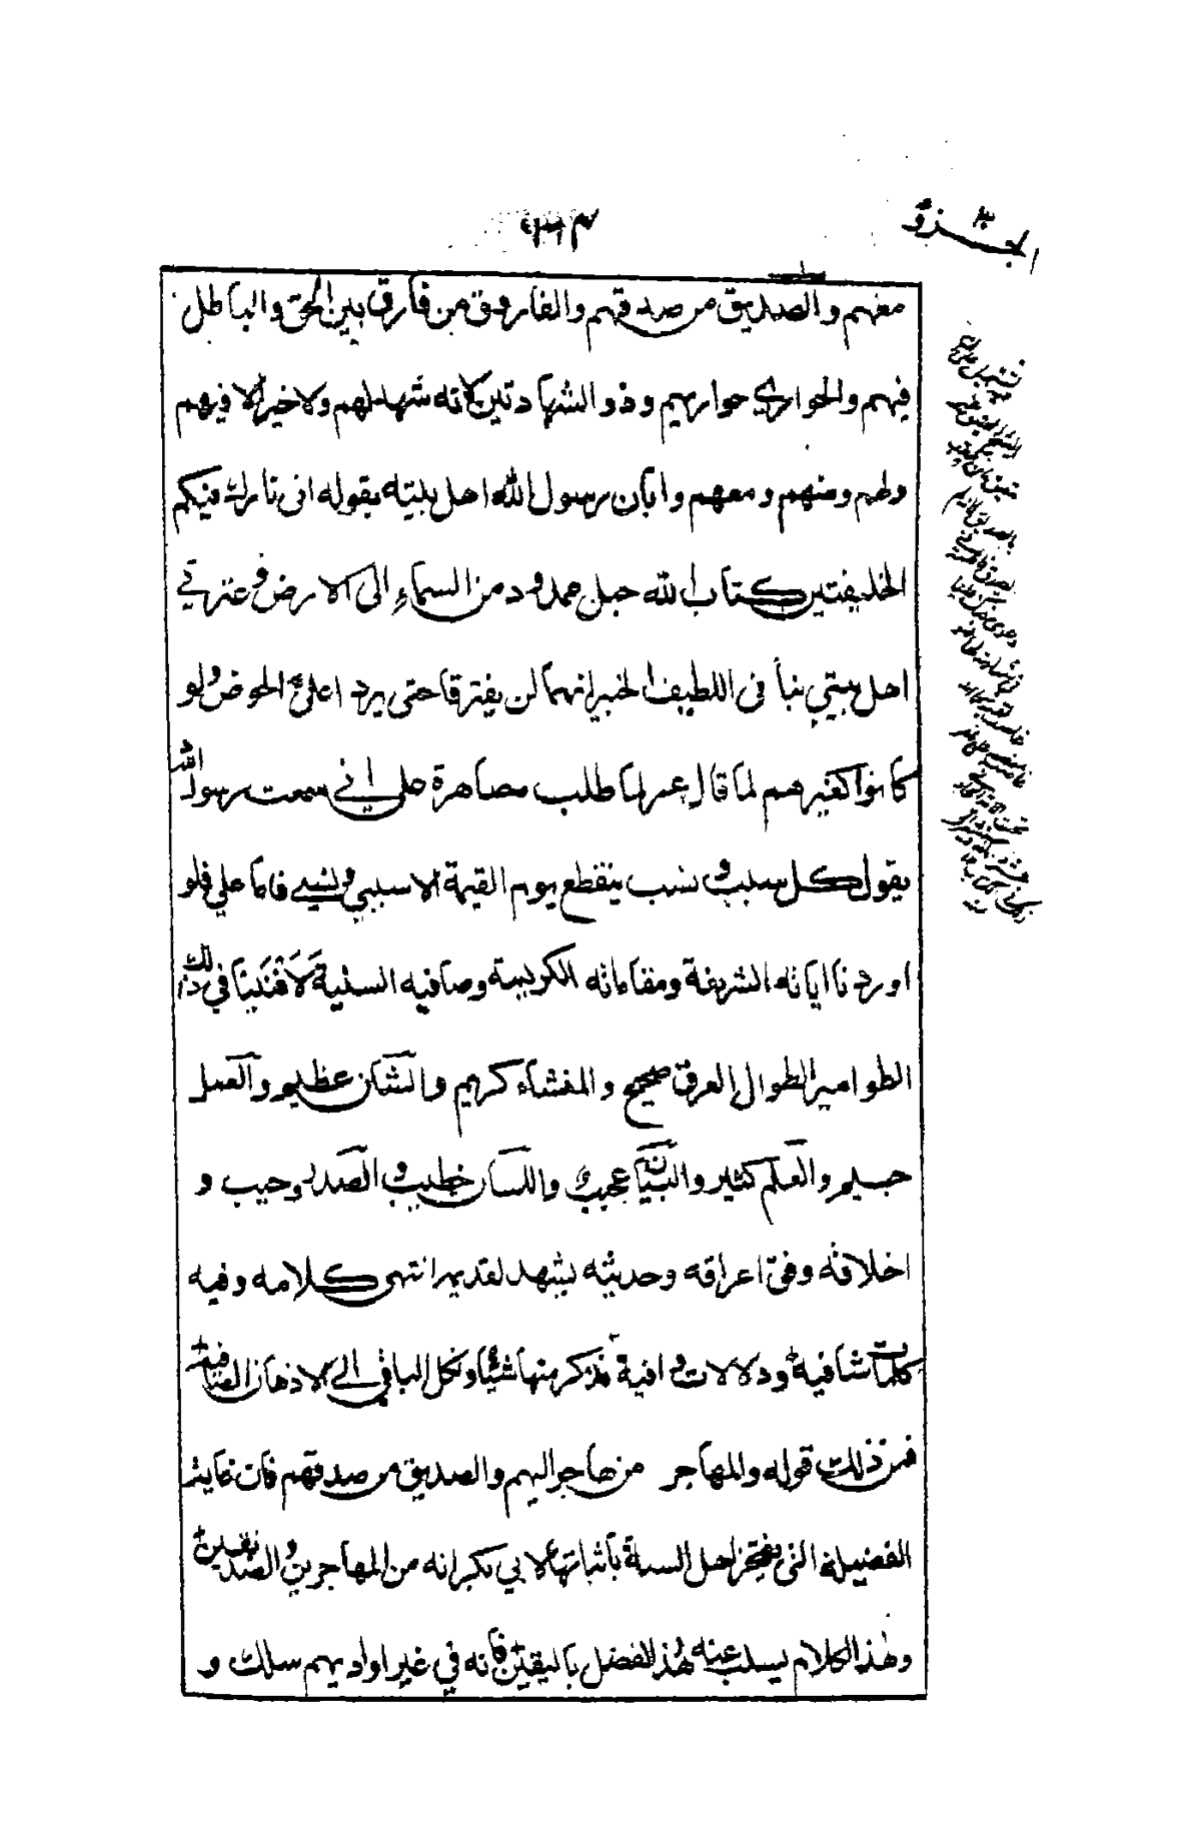 الجزؤ ٣
٤٣١٣
معهم والصديق من صدقهم والفاروق من فارق بين الحق والباطل
فيهم والحواري حواريهم وذو الشهادتين لانه شهد لهم ولا خير الا فيهم
ولهم ومنهم ومعهم وابان رسول الله اهل بيته بقوله انى تارك فيكم
الخليفتين كتاب الله حبل ممدود من السماء الى الارض وعترتي
اهل بيتي نبأنى اللطيف الخبير انهما لن يفترقا حتى يردا على الحوض ولو
كانوا كغيرهم لما قال عمر لما طلب مصاهرة علي اني سمعت رسول الله
يقول كل سبب و نسب ينقطع يوم القيمة الا سببي و نسبي فاما علي فلو
اوردنا اياته الشريفة ومقاماته الكريمة ومناقبه السنية لَاَفْنَيْنَا في ذلك
الطوامير الطوال العرق صحيح والمنشاء كريم والشأن عظيم والعمل
جسيم والعلم كثير والبيان عجيب واللسان خطيب و الصدر رحيب و
اخلاقه وفق اعراقه وحديثه يشهد لقديمه انتهى كلامه وفيه
كلمات شافية و دلالات وافية نذكر منها شيئا ونكل الباقي الى الاذهان الصافية
فمن ذلك قوله والمهاجر من هاجر اليهم والصديق من صدقهم فان غاية
الفضيلة التى يفتخر اهل السنة باثباتها لابي بكر انه من المهاجرين و الصديقين
وهذا الكلام يسلب عنه هذا الفضل باليقين فانه في غير اوديهم سلك و